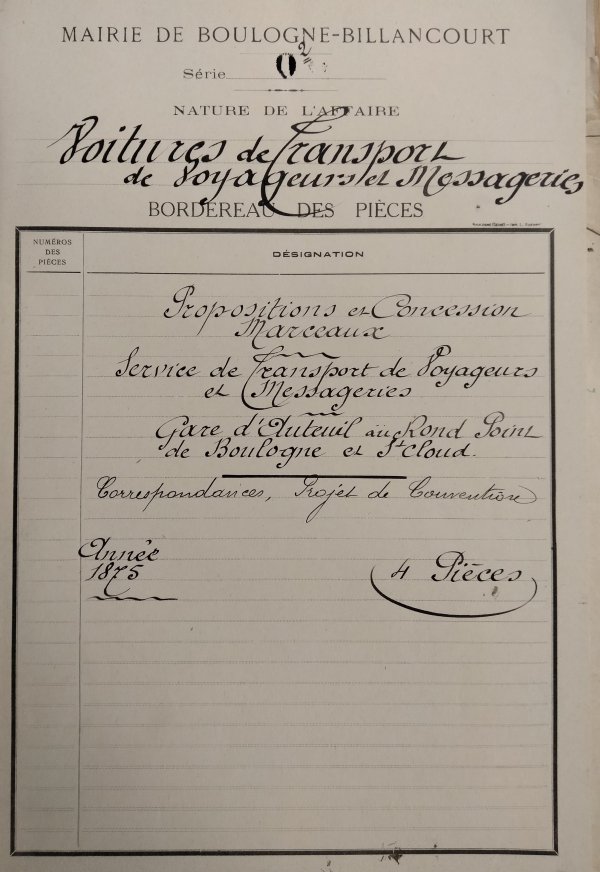 MAIRIE DE BOULOGNE-BILLANCOURT
Série O²
NATURE DE L'AFFAIRE
Voitures de Transport
de Voyageurs et Messageries
BORDEREAU DES PIÈCES
NUMÉROS
DES
PIÈCES
DÉSIGNATION
Propositions et Concession
Marceaux
Service de Transport de Voyageurs
et Messageries
Gare d'Auteuil au Rond Point
de Boulogne et St Cloud.
Correspondances, Projet de Convention
Année
1875
4 Pièces